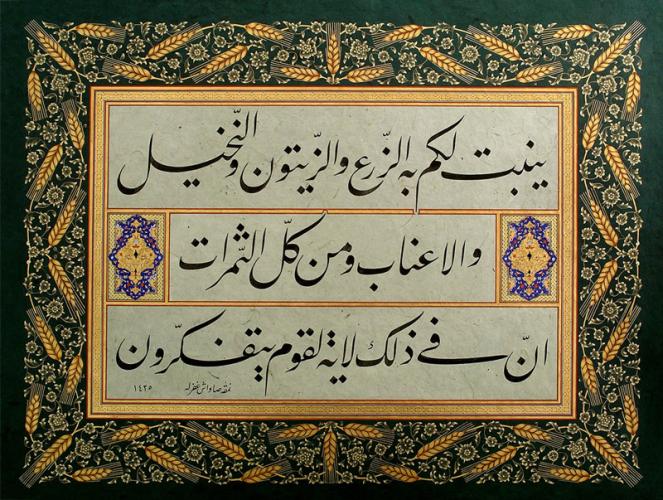 ينبت لكم به الزّرع والزّيتون والنّخيل
والاعناب ومن كلّ الثّمرات
انّ في ذلك لاية لقوم يتفكّرون
نمقه صاواش غفرله ١٤٢٥